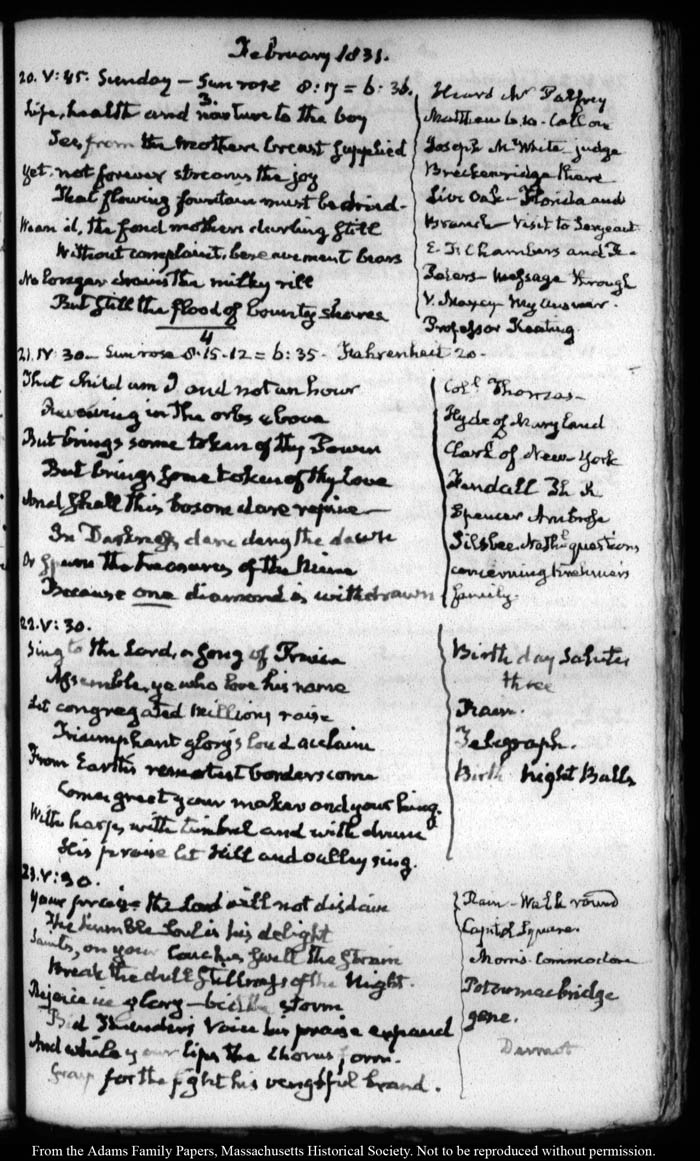 February 1831.
20. V: 45. Sunday - Sun rose 8:17 = 6: 36.
3.
Life, health and nurture to the boy
See, from the Mothers breast supplied
Yet, not forever streams the joy
That flowing fountain must be dried -
Wean'd, the fond mothers darling still
Without complaint, bereavement bears
No longer drains the milky rill
But still the flood of bounty shares
Heard Mr Palfrey
Matthew 6. 10. Call on
Joseph M. White - judge
Breckenridge there
Live Oak - Florida and
Branch - Visit to Sergeant
E. F. Chambers and
Peters - Message through
V. Maxcy - My answer.
Professor Keating.
4
21. IV: 30 - Sun rose 8.15-12 = 6: 35 - Fahrenheit 20 -
That child am I and not an hour
Revolving in the orbs above
But brings some token of thy Power
But brings some token of thy Love
And shall this bosom dare repine
In Darkness dare deny the dawn
Or spurn the treasures of the Mine
Because one diamond is withdrawn
Coll. Thomas -
Hyde of Maryland
Clark of New-York
Kendall Th. K
Spencer Ambrose
Silsbee Nathl. questions
concerning
family.
22. V: 30.
Sing to the Lord, a Song of Praise
Assemble, ye who love his name
Let congregated Millions raise
Triumphant glory's loud acclaim
From Earth's remotest borders come
Come, greet your maker and your king.
With harp, with timbrel and with drum
His praise let Hill and valley sing.
Birth day Salutes
three
Rain.
Telegraph.
Birth Night Balls
23. V: 30.
Your praise the Lord will not disdain
The humble Soul is his delight
Saints, on your Couches swell the Strain
Break the dull Stillness of the Night.
Rejoice in glory - bid the storm
Bid Thunder's Voice his praise expand
And while your lips the Chorus form.
Grasp for the fight his vengeful brand.
Rain - Walk round
Capitol Square
Morris. Commodore
Potowmac bridge
gone.
From the Adams Family Papers, Massachusetts Historical Society. Not to be reproduced without permission.